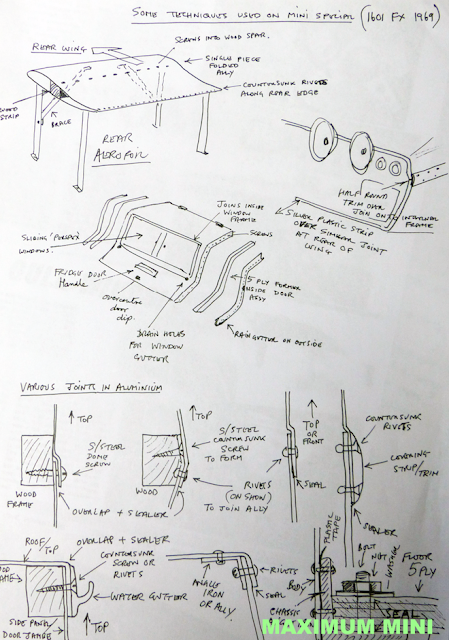 SOME TECHNIQUES USED ON MINI SPECIAL (1601 FX 1969)
REAR WING
SCREWS INTO WOOD SPAR.
SINGLE PIECE
FOLDED
ALLY
COUNTERSUNK RIVETS
ALONG REAR EDGE
STRIP
BRACE
REAR
AEROFOIL
HALF ROUND
TRIM OVER
JOIN ONTO INTERNAL
FRAME
SILVER PLASTIC STRIP
OVER SIMILAR JOINT
AT REAR OF
WING
JOINS INSIDE
WINDOW
FRAME
SCREWS
SLIDING PERSPEX
WINDOWS.
FRIDGE DOOR
Handle
overcentre
door
clip.
DRAIN HOLES
FOR WINDOW
GUTTER
5 PLY FORMER
INSIDE DOOR
ASSY
RAIN GUTTER ON OUTSIDE
VARIOUS JOINTS IN ALUMINIUM
TOP
S/STEEL
DOME
SCREW
WOOD
FRAME
OVERLAP + SEALER
TOP
S/STEEL
COUNTERSUNK
SCREW
TO FORM
WOOD
RIVETS
(ON SHOW)
TO JOIN ALLY
TOP
OR
FRONT
SEAL
COUNTERSUNK
RIVETS
COVERING
STRIP/TRIM
SEALER
ROOF/
TOP
OVERLAP + SEALER
COUNTERSUNK
SCREW OR
RIVETS
WATER GUTTER
SIDE PANEL
DOOR JAMB
TOP
ANGLE
IRON
OR ALLY.
RIVETS
SEAL
PLASTIC
TAPE
BODY
CHASSIS
BOLT
NUT
WASHER
FLOOR
5 PLY
SEAL
MAXIMUM MINI